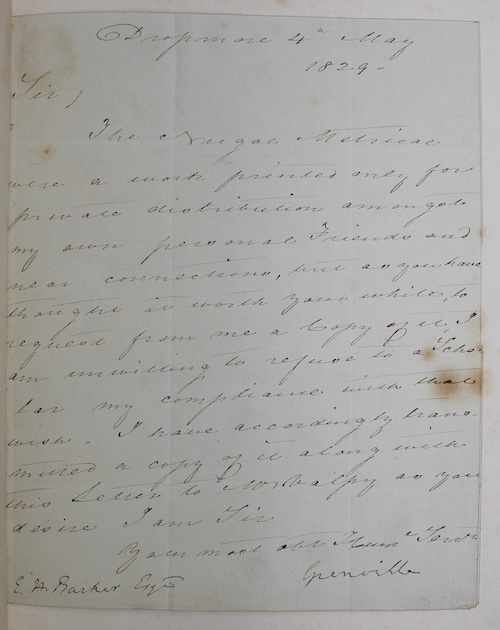 Dropmore 4th May
1829-
Sir,
The Nugae Metricae
were a work printed only for
private distribution amongst
my own personal Friends and
near connections, but as you have
thought it worth your while, to
request from me a Copy of it, I
am unwilling to refuse to a Scho
lar my compliance with that
wish. I have accordingly trans-
mitted a copy of it along with
this Letter to Mr Valpy as you
desire I am Sir
Your most obt Humle Servt
Grenville
E. H. Barker Esqre